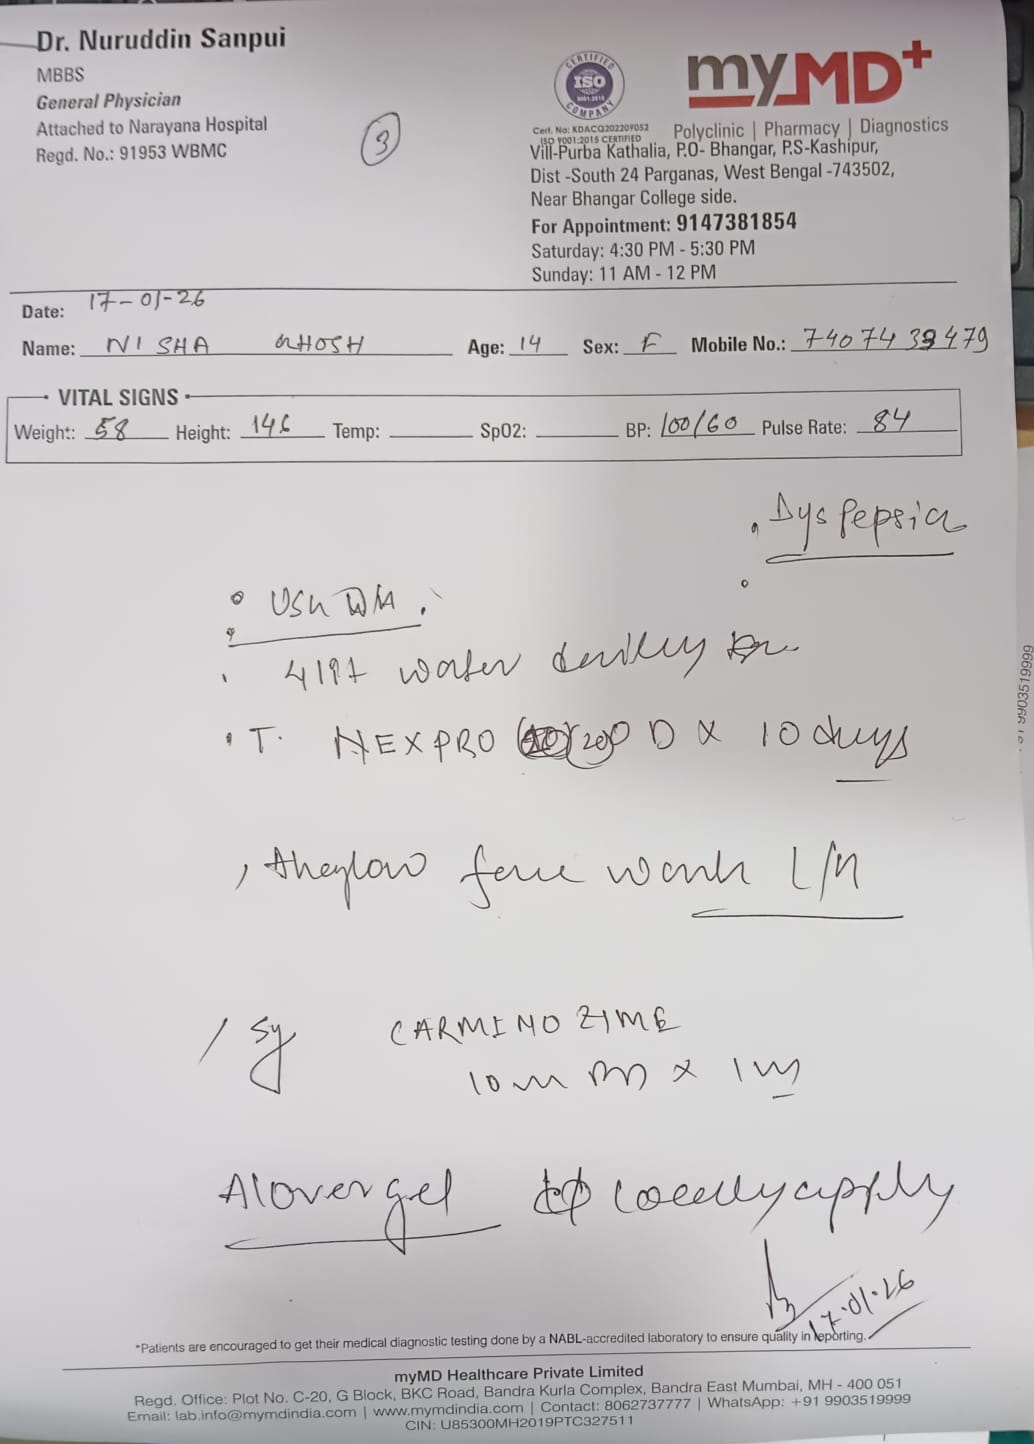 Dr. Nuruddin Sanpui
MBBS
General Physician
Attached to Narayana Hospital
Regd. No.: 91953 WBMC
3
CERTIFIED
ISO
9001:2015
COMPANY
Cert. No: KDACQ202209052
ISO 9001:2015 CERTIFIED
myMD+
Polyclinic | Pharmacy | Diagnostics
Vill-Purba Kathalia, P.O- Bhangar, P.S-Kashipur,
Dist -South 24 Parganas, West Bengal -743502,
Near Bhangar College side.
For Appointment: 9147381854
Saturday: 4:30 PM - 5:30 PM
Sunday: 11 AM - 12 PM
Date: 17-01-26
Name: NISHA GHOSH Age: 14 Sex: F Mobile No.: 7407439479
VITAL SIGNS
Weight: 58 Height: 146 Temp: SpO2: BP: 100/60 Pulse Rate: 84
Dyspepsia
USG
water
T. NEXPRO (20) OD x 10 days
face wash L/A
Sy CARMINOZIME
10 x 1
Alovera gel locally apply
17.01.26
*Patients are encouraged to get their medical diagnostic testing done by a NABL-accredited laboratory to ensure quality in reporting.
myMD Healthcare Private Limited
Regd. Office: Plot No. C-20, G Block, BKC Road, Bandra Kurla Complex, Bandra East Mumbai, MH - 400 051
Email: lab.info@mymdindia.com | www.mymdindia.com | Contact: 8062737777 | WhatsApp: +91 9903519999
CIN: U85300MH2019PTC327511
9903519999